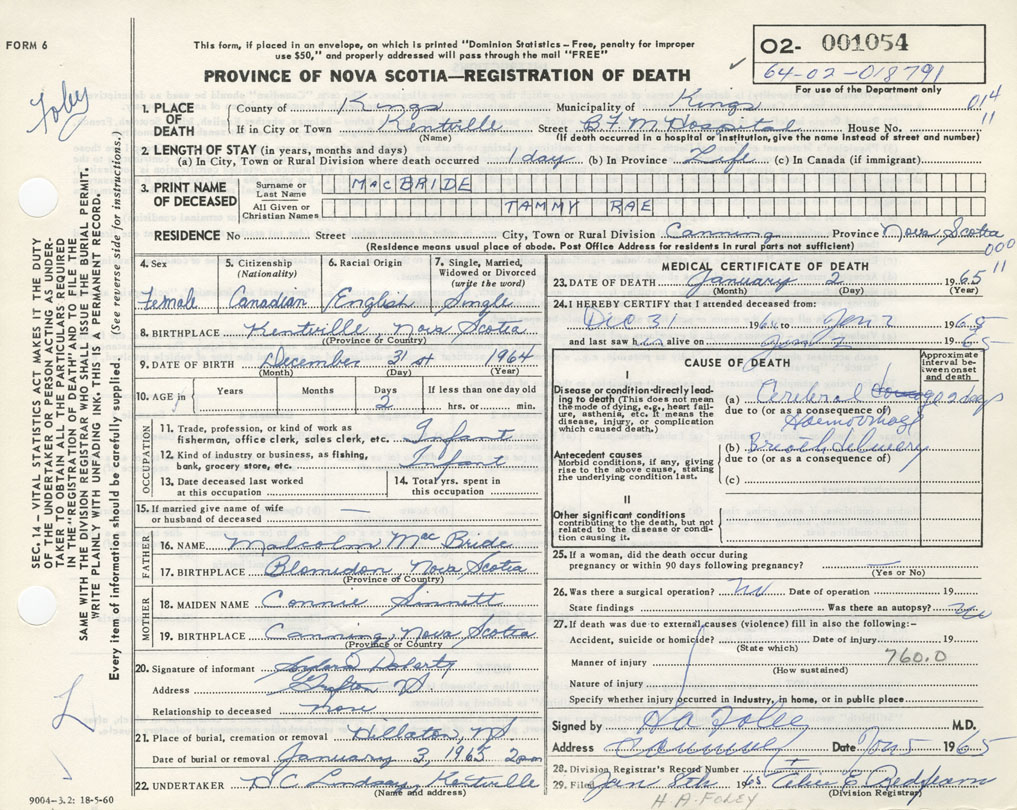 FORM 6
This form, if placed in an envelope, on which is printed "Dominion Statistics - Free, penalty for improper
use $50," and properly addressed will pass through the mail "FREE"
PROVINCE OF NOVA SCOTIA—REGISTRATION OF DEATH
O2- 001054
64-02-018791
For use of the Department only
Foley
014
11
1. PLACE OF DEATH County of Kings Municipality of Kings
If in City or Town Kentville Street B.F.M. Hospital House No.
(Name) (If death occurred in a hospital or institution, give the name instead of street and number)
2. LENGTH OF STAY (in years, months and days)
(a) In City, Town or Rural Division where death occurred 1 day (b) In Province Life (c) In Canada (if immigrant).
3. PRINT NAME OF DECEASED Surname or Last Name MACBRIDE
All Given or Christian Names TAMMY RAE
RESIDENCE No Street City, Town or Rural Division Canning Province Nova Scotia
(Residence means usual place of abode. Post Office Address for residents in rural parts not sufficient)
000
11
SEC. 14 – VITAL STATISTICS ACT MAKES IT THE DUTY
OF THE UNDERTAKER OR PERSON ACTING AS UNDER-
TAKER TO OBTAIN ALL THE PARTICULARS REQUIRED
IN THE "REGISTRATION OF DEATH" AND TO FILE THE
SAME WITH THE DIVISION REGISTRAR WHO SHALL ISSUE THE BURIAL PERMIT.
WRITE PLAINLY WITH UNFADING INK. THIS IS A PERMANENT RECORD.
Every item of information should be carefully supplied. (See reverse side for instructions.)
4. Sex Female
5. Citizenship (Nationality) Canadian
6. Racial Origin English
7. Single, Married, Widowed or Divorced (write the word) Single
8. BIRTHPLACE Kentville, Nova Scotia
(Province or Country)
9. DATE OF BIRTH December 31st 1964
(Month) (Day) (Year)
10. AGE in Years Months Days 2 If less than one day old hrs. or min.
OCCUPATION
11. Trade, profession, or kind of work as
fisherman, office clerk, sales clerk, etc. Infant
12. Kind of industry or business, as fishing,
bank, grocery store, etc. Infant
13. Date deceased last worked
at this occupation
14. Total yrs. spent in
this occupation
15. If married give name of wife
or husband of deceased —
FATHER
16. NAME Malcolm MacBride
17. BIRTHPLACE Blomidon, Nova Scotia
(Province or Country)
MOTHER
18. MAIDEN NAME Connie Sinnett
19. BIRTHPLACE Canning, Nova Scotia
(Province or Country)
20. Signature of informant
Address Grafton NS.
Relationship to deceased none
21. Place of burial, cremation or removal Hillaton, NS
Date of burial or removal January 3, 1965 2pm
22. UNDERTAKER Lindsay, Kentville
(Name and address)
9004–3.2: 18-5-60
MEDICAL CERTIFICATE OF DEATH
23. DATE OF DEATH January 2 1965
(Month) (Day) (Year)
24. I HEREBY CERTIFY that I attended deceased from:
Dec 31 1964 to Jan 2 1965
and last saw her alive on Jan 2 1965
CAUSE OF DEATH
Approximate interval between onset and death
I
Disease or condition directly leading to death (This does not mean the mode of dying, e.g., heart failure, asthenia, etc. It means the disease, injury, or complication which caused death.)
(a) Cerebral 2 days
due to (or as a consequence of)
Haemorrhage
Antecedent causes
Morbid conditions, if any, giving rise to the above cause, stating the underlying condition last.
(b) Breech delivery
due to (or as a consequence of)
(c)
II
Other significant conditions
contributing to the death, but not related to the disease or condition causing it.
25. If a woman, did the death occur during
pregnancy or within 90 days following pregnancy? —
(Yes or No)
26. Was there a surgical operation? No Date of operation 19
State findings Was there an autopsy? No
27. If death was due to external causes (violence) fill in also the following:–
Accident, suicide or homicide? Date of injury 19
(State which)
760.0
Manner of injury
(How sustained)
Nature of injury
Specify whether injury occurred in industry, in home, or in public place
Signed by H A Foley M.D.
Address Canning Date Jan 5 1965
28. Division Registrar's Record Number
29. Filed Jan 8th 1965
(Division Registrar)
H.A. FOLEY